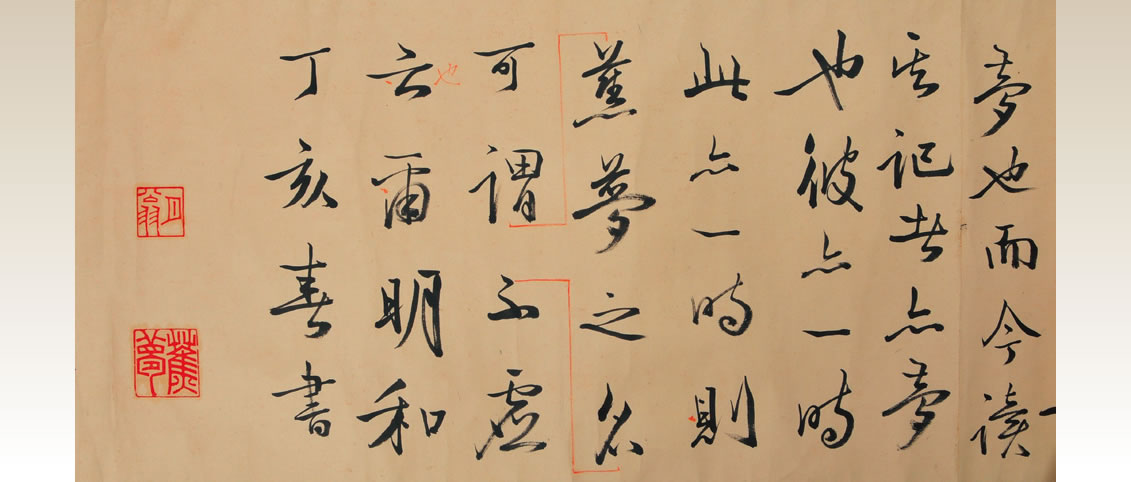 夢也而今讀
其記者亦夢
也彼亦一時
此亦一時則
蕉夢之名
可謂不虛
也
云爾明和
丁亥春書
翁
蕉夢